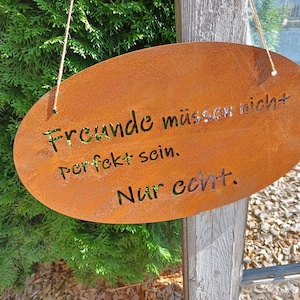 Freunde müssen nicht
perfekt sein.
Nur echt.